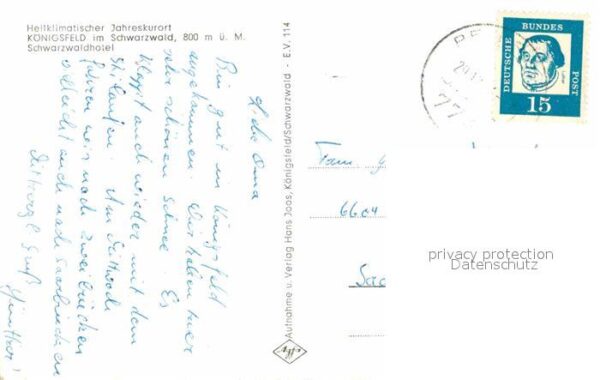 Heilklimatischer Jahreskurort
KÖNIGSFELD im Schwarzwald, 800 m ü. M.
Schwarzwaldhotel
Liebe Oma
Bin gut in Königsfeld
angekommen. Wir haben hier
sehr schönen Schnee. Es
klappt auch wieder mit dem
Skilaufen. Am Mittwoch
fahren wir nach Zweibrücken
vielleicht auch nach Saarbrücken
Herzl. Gruß
Günther!
Aufnahme u. Verlag Hans Joos, Königsfeld/Schwarzwald - E.V. 114
Agfa
DEUTSCHE BUNDES POST
15
77
Fam.
6604
privacy protection
Datenschutz